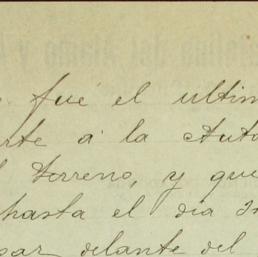 fué el ultim
rte á la Auto
l terreno, y que
hasta el dia in
sar delante del